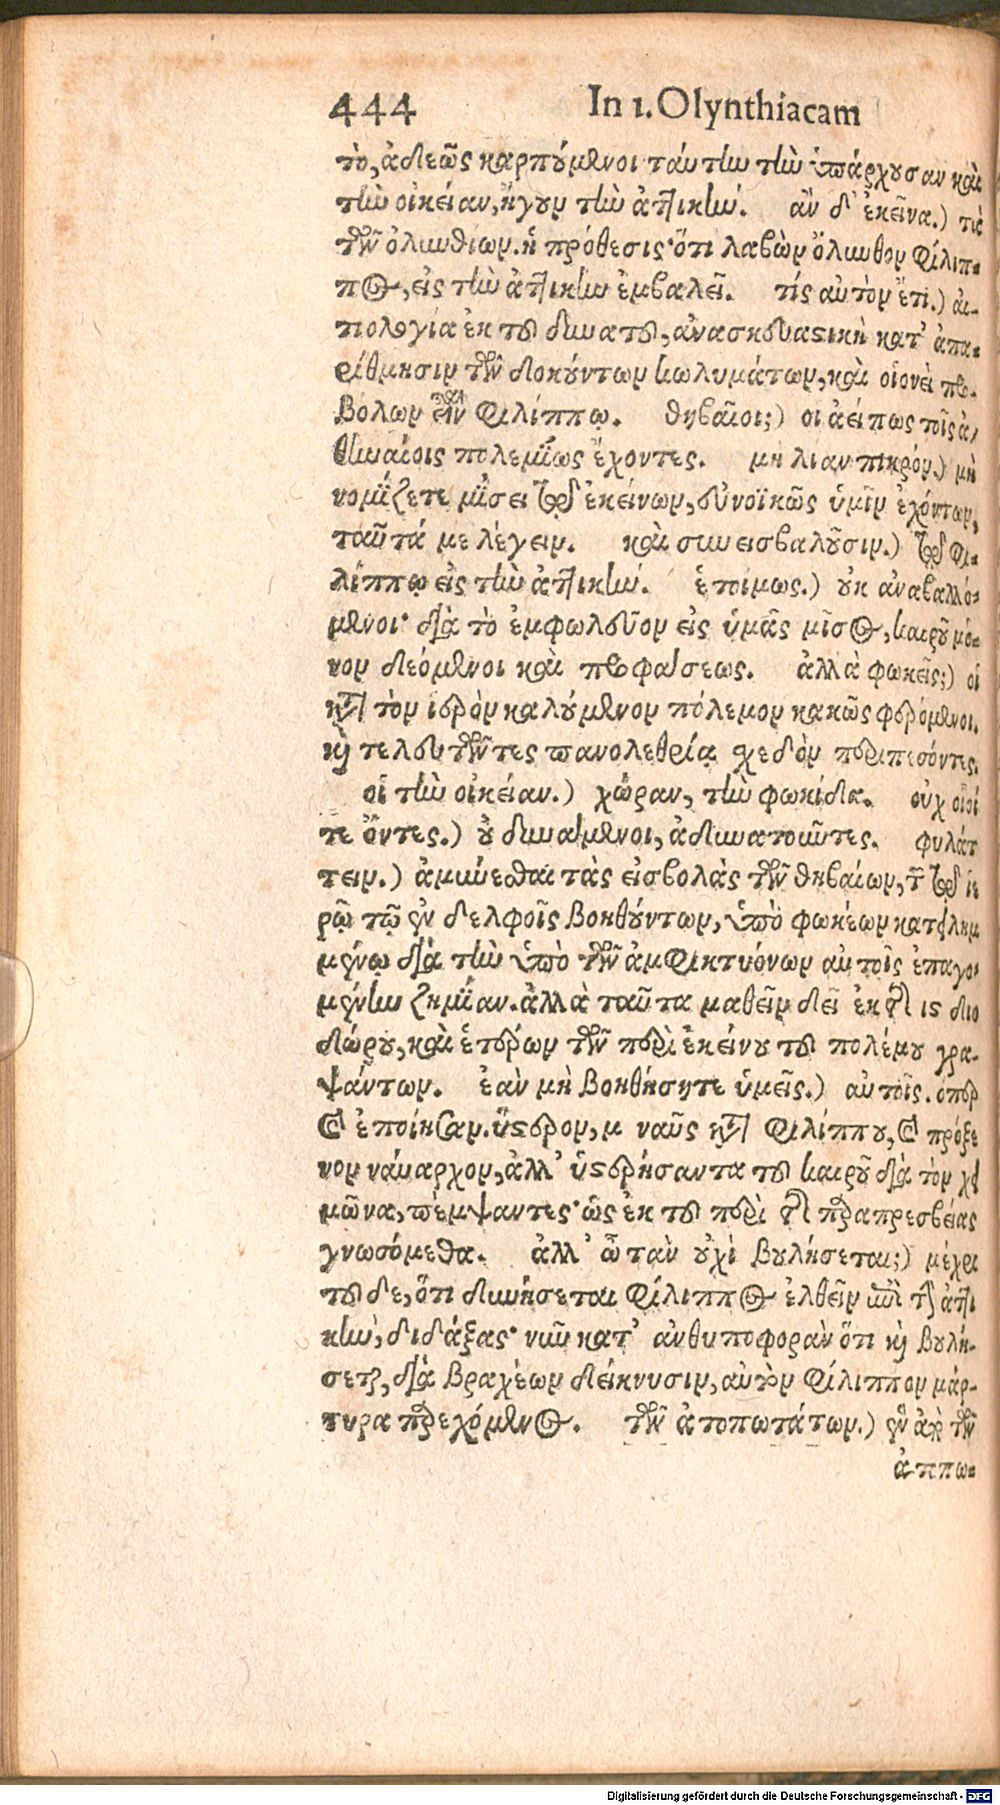 444 In 1. Olynthiacam
το, ἀδεῶς καρπούμενοι ταύτην τὴν ὑπάρχουσαν καὶ
τὴν οἰκείαν, ἤγουν τὴν ἀττικήν. ἂν δ' ἐκεῖνα.) τὰ
τῶν ὀλυνθίων. ἡ πρόθεσις· ὅτι λαβὼν ὄλυνθον φίλιπ-
πος, εἰς τὴν ἀττικὴν ἐμβαλεῖ. τίς αὐτὸν ἔτι.) αἰ-
τιολογία ἐκ τοῦ δυνατοῦ, ἀνασκευαστικὴ κατ' ἀπα-
ρίθμησιν τῶν δοκούντων κωλυμάτων, καὶ οἱονεὶ προ-
βόλων εἶναι φιλίππῳ. θηβαῖοι;) οἱ ἀεί πως τοῖς ἀ-
θηναίοις πολεμίως ἔχοντες. μὴ λίαν πικρόν.) μὴ
νομίζετε μίσει τῷ ἐκείνων, εὐνοϊκῶς ὑμῖν ἐχόντων,
ταῦτά με λέγειν. καὶ συνεισβαλοῦσιν.) τῷ φι-
λίππῳ εἰς τὴν ἀττικήν. ἑτοίμως.) οὐκ ἀναβαλλό-
μενοι· διὰ τὸ ἐμφωλεῦον εἰς ὑμᾶς μῖσος, καιροῦ μό-
νον δεόμενοι καὶ προφάσεως. ἀλλὰ φωκεῖς;) οἱ
κατὰ τὸν ἱερὸν καλούμενον πόλεμον κακῶς φερόμενοι.
καὶ τελευτῶντες πανολεθρίᾳ σχεδὸν περιπεσόντες.
οἱ τὴν οἰκείαν.) χώραν, τὴν φωκίδα. οὐχ οἷοί
τε ὄντες.) οὐ δυνάμενοι, ἀδυνατοῦντες. φυλάτ
τειν.) ἀμύνεσθαι τὰς εἰσβολὰς τῶν θηβαίων, τῷ ἱε
ρῷ τῷ ἐν δελφοῖς βοηθούντων, ὑπὸ φωκέων κατειλημ
μένῳ διὰ τὴν ὑπὸ τῶν ἀμφικτυόνων αὐτοῖς ἐπαγο-
μένην ζημίαν. ἀλλὰ ταῦτα μαθεῖν δεῖ ἐκ τῆς ις διο
δώρου, καὶ ἑτέρων τῶν περὶ ἐκείνου τοῦ πολέμου γρα-
ψάντων. ἐὰν μὴ βοηθήσητε ὑμεῖς.) αὐτοῖς. ὅπερ
καὶ ἐποίησαν. ὕστερον, μ ναῦς κατὰ φιλίππου, καὶ πρόξε
νον ναύαρχον, ἀλλ' ὑστερήσαντα τοῦ καιροῦ διὰ τὸν χει
μῶνα, πέμψαντες· ὡς ἐκ τοῦ περὶ τῆς παραπρεσβείας
γνωσόμεθα. ἀλλ' ὦ τὰν οὐχὶ βουλήσεται;) μέχρι
τοῦδε, ὅτι δυνήσεται φίλιππος ἐλθεῖν ἐπὶ τὴν ἀττι
κὴν, διδάξας· νῦν κατ' ἀνθυποφορὰν ὅτι καὶ βουλή-
σεται, διὰ βραχέων δείκνυσιν, αὐτὸν φίλιππον μάρ-
τυρα παρεχόμενος. τῶν ἀτοπωτάτων.) ἓν ἀπὸ τῶν
ἀτοπω-
Digitalisierung gefördert durch die Deutsche Forschungsgemeinschaft - DFG